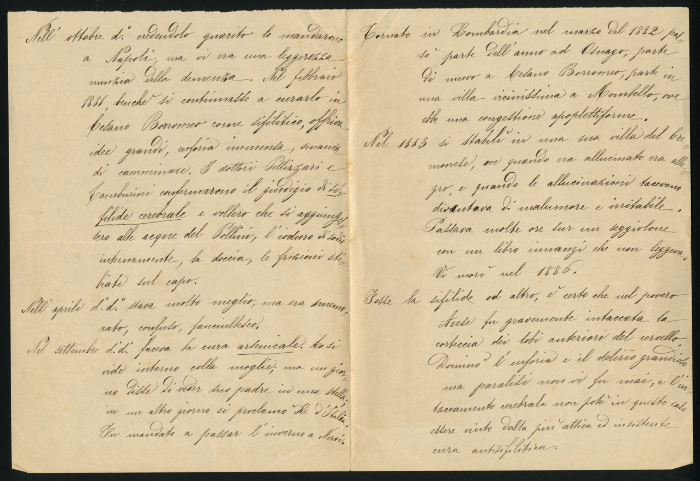 Nell' ottobre d.° credendolo guarito lo mandarono
a Napoli, ma vi era una leggerezza
della demenza. Nel febbraio
1881, benché si continuasse a curarlo in
Cesano Borromeo come sifilitico, offriva
idee grandi, euforia immensa, smania
di camminare. I dottori Pellizzari e
Tamburini confermarono il giudizio di si-
filide cerebrale e vollero che si aggiunges-
sero alle acque del Pollini, l'ioduro di sodio
internamente, la doccia, le frizioni sti-
biate sul capo.
Nell' aprile d.° d.° stava molto meglio, ma era smemo-
rato, confuso, fanciullesco.
Nel settembre d.d. faceva la cura arsenicale. Lo si
vide intorno colla moglie; ma un gior-
no disse di veder suo padre in una stella;
in un altro giorno si proclamò Re d'Italia.
Fu mandato a passar l'inverno a Nervi.
Tornato in Lombardia nel marzo del 1882 pas-
sò parte dell'anno ad Osnago, parte
di nuovo a Cesano Borromeo, parte in
una villa vicinissima a Mombello, ove
ebbe una congestione apoplettiforme.
Nel 1883 si stabilì in una sua villa del Cre-
monese, ove quando era allucinato era alle-
gro, e quando le allucinazioni tacevano
diventava di malumore e irritabile.
Passava molte ore sur un seggiolone
con un libro innanzi che non leggeva.
Vi morì nel 1886.
Fosse la sifilide od altro, è certo che nel povero
fu gravemente intaccata la
corteccia dei lobi anteriori del cervello.
Dominò l'euforia e il delirio grandioso
ma paralisi non vi fu mai, e l'in-
taccamento cerebrale non potè in questo caso
essere vinto dalla più attiva ed insistente
cura antisifilitica.